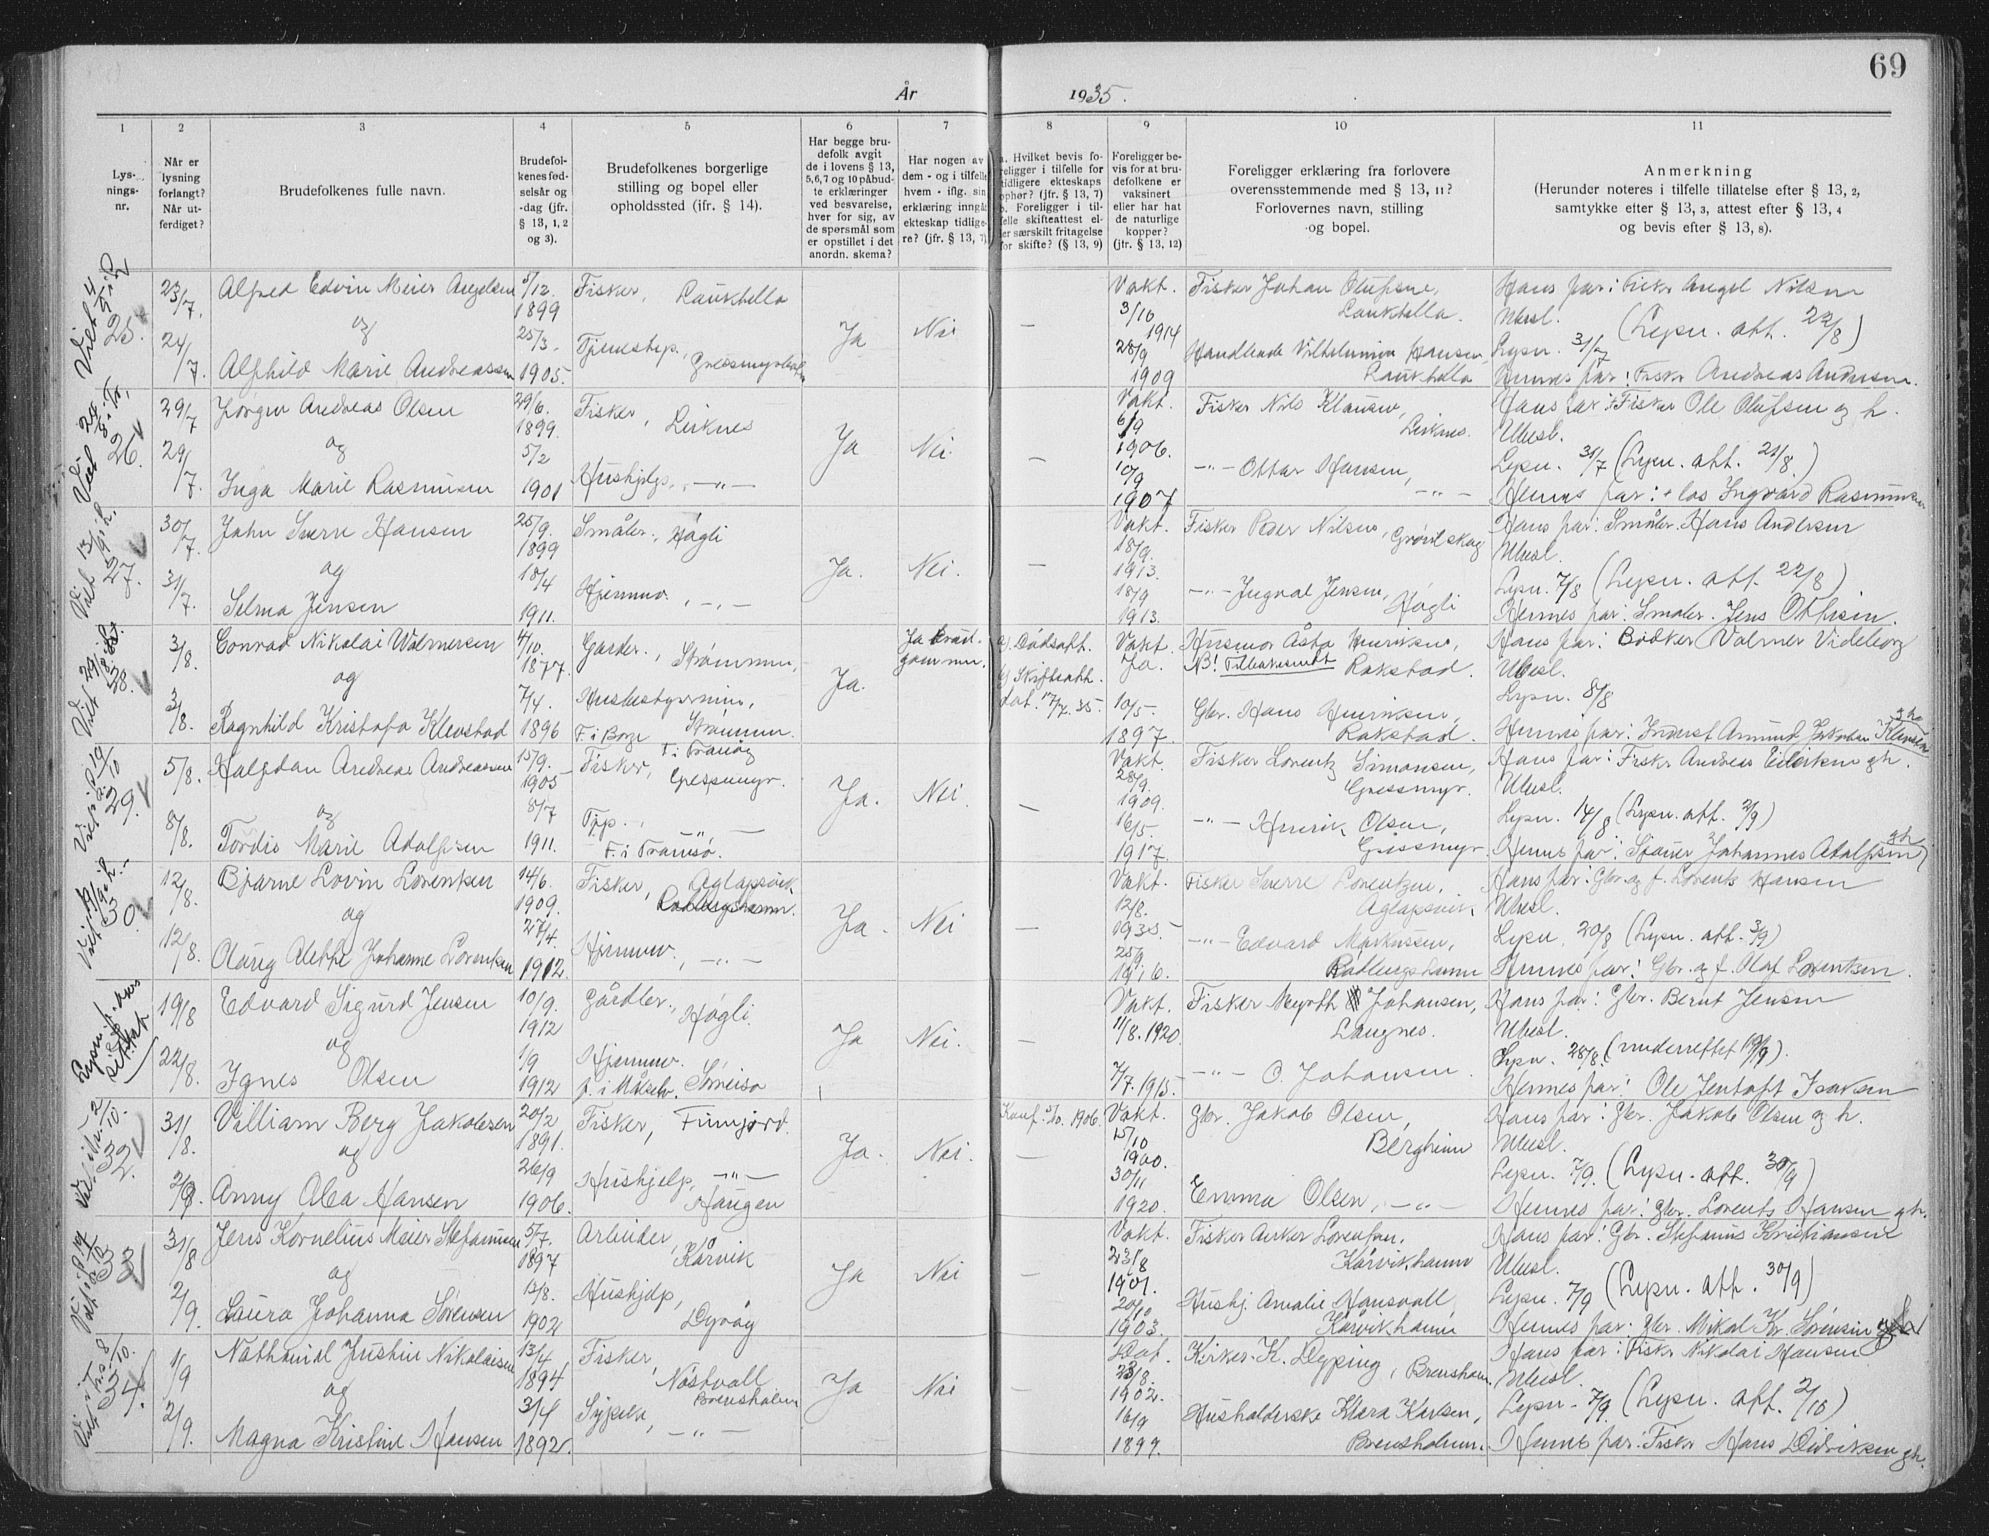 69
År 1935.
1 2 3 4 5 6 7 8 9 10 11
Lysningsnr.
Når er lysning forlangt? Når utferdiget?
Brudefolkenes fulle navn.
Brudefolkenes fødselsår og -dag (jfr. § 13, 1, 2 og 3).
Brudefolkenes borgerlige stilling og bopel eller opholdssted (ifr. § 14).
Har begge brudefolk avgit de i lovens § 13, 5,6,7 og 10 påbudte erklæringer ved besvarelse, hver for sig, av de spørsmål som er opstillet i det anordn. skema?
Har nogen av dem - og i tilfelle hvem - iflg. sin erklæring inngåt ekteskap tidligere? (jfr. § 13, 7)
a. Hvilket bevis foreligger i tilfelle for tidligere ekteskaps ophør? (jfr. § 13, 7)
b. Foreligger i tilfelle skifteattest eller særskilt fritagelse for skifte? (§ 13, 9)
Foreligger bevis for at brudefolkene er vaksinert eller har hat de naturlige kopper? (jfr. § 13, 12)
Foreligger erklæring fra forlovere overensstemmende med § 13, 11? Forlovernes navn, stilling og bopel.
Anmerkning
(Herunder noteres i tilfelle tillatelse efter § 13, 2, samtykke efter § 13, 3, attest efter § 13, 4 og bevis efter § 13, 8).
25.
23/7. 24/7.
Alfred Edvin Meier Angelsen
og
Alfhild Marie Andreassen
5/12. 1899
25/3. 1905.
Fisker, Laukhella
Tjenestep.,
Ja Nei —
Vakt. 3/10 1914
28/9 1909
Fisker Johan Olufsen, Laukhella.
Handlende Vilhelmine Hansen, Laukhella
Hans far: Fisker Angel Nilsen
Ubesl.
Lysn. 31/7 (Lysn. att. 22/8)
Hennes far: Fisker Andreas Andersen.
26.
29/7 29/7.
Jørgen Andreas Olsen
og
Inga Marie Rasmussen
29/6. 1899.
5/2 1901
Fisker, Leiknes
Hushjelp, -"-
Ja Nei —
Vakt. 6/9 1906.
10/9 1907
Fisker Nils Klausen, Leiknes.
-"- Ottar Hansen, -"-
Hans far: Fisker Ole Olufsen og h.
Ubesl.
Lysn. 31/7 (Lysn. att. 21/8.)
Hennes far: + los Ingvard Rasmussen
27.
30/7. 31/7.
John Sverre Hansen
og
Selma Jensen
25/9. 1899
18/4 1911.
Småbr., Høgli
Hjemmev., -"-
Ja. Nei. —
Vakt. 18/9. 1913.
18/9 1913.
Fisker Peder Nilsen,
-"- Ingval Jensen, Høgli
Hans far: Småbr. Hans Andersen
Ubesl.
Lysn. 7/8 (Lysn. att. 22/8)
Hennes far: Småbr. Jens
28.
3/8. 3/8.
Conrad Nikolai Walmersen
og
Ragnhild Kristofa Klevstad
4/10. 1877.
7/4. 1896
Gårdbr., Strømmen,
Husbestyrerinne, Strømmen.
F. i Borge
Ja. Ja brudgommen.
a) Dødsatt.
b) Skifteatt. dat. 17/7. 35.
Vakt. Ja.
10/5. 1897.
Husmor Åsta Henriksen, Rakstad
N! Tilbakesendt
Gbr. Hans Henriksen, Rakstad.
Hans far: Bødker Valmer Videborg
Ubesl.
Lysn. 8/8
Hennes far: Inderst Amund Jakobsen Klevstad
29.
5/8. 8/8.
Halfdan Andreas Andreassen
og
Tordis Marie Adolfsen
15/9. 1905
8/7 1911.
F. i Tranøy
Fisker, Gressmyr.
Tpp. -"-
F. i Tromsø.
Ja. Nei. —
Vakt. 28/9. 1909.
16/5. 1917.
Fisker Lorentz Simonsen, Gressmyr.
-"- Henrik Olsen, Gressmyr.
Hans far: Fisker Andreas Eilertsen gh.
Ubesl.
Lysn. 14/8 (Lysn. att. 2/9)
Hennes far: Johannes Adolfsen gh
30.
12/8. 12/8.
Bjarne Lovin Lorentsen
og
Olaug Alette Johanne Lorentsen
14/6. 1909.
27/4. 1912.
Fisker, Aglapsvik
Hjemmev., -"-
Ja. Nei —
Vakt. 12/8. 1935.
25/9
Fisker Sverre Lorentzen, Aglapsvik.
-"- Edvard Markussen, Rødbergshamn
Hans far: Gbr. og f. Lorents Hansen
Ubesl.
Lysn. 20/8 (Lysn. att. 3/9)
Hennes far: Gbr. og f. Olaf Lorentsen.
19/8 22/8.
Edvard Sigurd Jensen
og
Ignes Olsen
10/9. 1912
1/9 1912
Gårdbr., Høgli.
Hjemmev.
F. i Målselv.
Ja Nei. —
Vakt. 11/8. 1920.
7/7. 1915
Fisker Meyroth Johansen, Laugnes.
-"- O. Johansen.
Hans far: Gbr. Bernt Jensen
Ubesl.
Lysn. 28/8. (underrettet 19/9).
Hennes far: Ole Jentoft Isaksen
32.
31/8. 2/9.
Villiam Berg Jakobsen
og
Anny Alea Hansen
20/2 1891.
26/9 1906.
Fisker, Finnjord.
Hushjelp, -"- Haugen
Ja. Nei. —
Konf. 1906.
Vakt. 15/10 1900.
30/11 1920.
Gbr. Jakob Olsen, Bergheim
Emma Olsen, -"-
Hans far: Gbr. Jakob Olsen og h.
Ubesl.
Lysn. 7/9. (Lysn. att. 30/9)
Hennes far: Gbr. Lorents Hansen gh.
33
31/8 2/9.
Jens Kornelius Meier Stefanussen
og
Laura Johanna Sørensen
5/7. 1897
12/8. 1902
Arbeider, Kårvik
Hushjelp, Dyrøy
Ja Nei —
Vakt. 23/8 1901.
20/10 1903.
Fisker Anker Lorentsen, Kårvikhamn
Hushj. Amalie Hansvoll, Kårvikhamn
Hans far: Gbr. Stefanus Kristiansen
Ubesl.
Lysn. 7/9 (Lysn. att. 30/9)
Hennes far: Gbr. Mikal Kr. Sørensen
34.
1/9 2/9.
Nathanial Justin Nikolaisen
og
Magna Kristine Hansen
13/4 1894
3/4 1892.
Fisker, Nåstvoll Brensholmen
Sypike, -"-
Ja Nei —
23/8. 1902.
16/9 1899.
Kirkes. K. Depping, Brensholm.
Husholderske Klara Karlsen, Brensholmen.
Hans far: Fisker Nikolai Hansen
Ubesl.
Lysn. 7/9. (Lysn. att. 2/10)
Hennes far: Fisker Hans Didriksen gh.